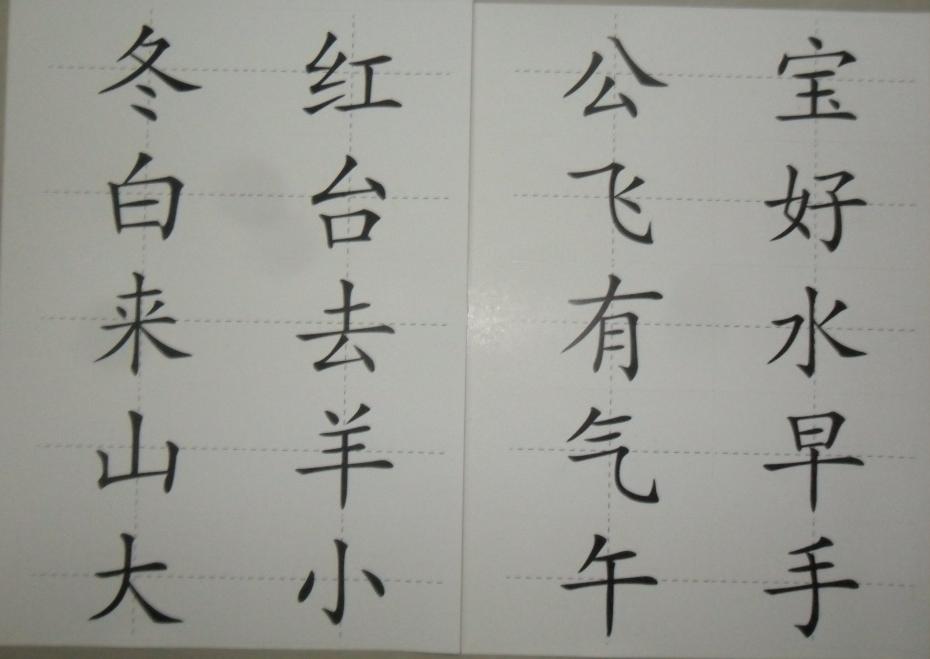 冬 红 公 宝
白 台 飞 好
来 去 有 水
山 羊 气 早
大 小 午 手